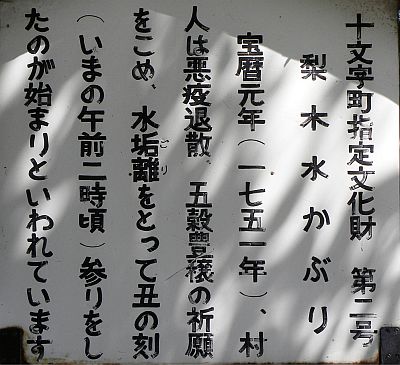 十文字町指定文化財　第二号
梨木水かぶり
宝暦元年(一七五一年)、村
人は悪疫退散、五穀豊穣の祈願
をこめ、水垢離をとって丑の刻
ごり
(いまの午前二時頃)参りをし
たのが始まりといわれています